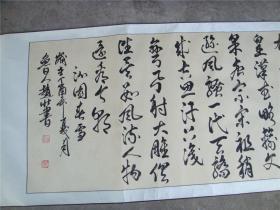 皇漢武略輸文
采唐宗宋祖稍
遜風騷一代天驕
成吉思汗只識
彎弓射大雕俱
往矣數風流人物
還看今朝
沁園春雪
歲在丁酉年夏月
人趙書